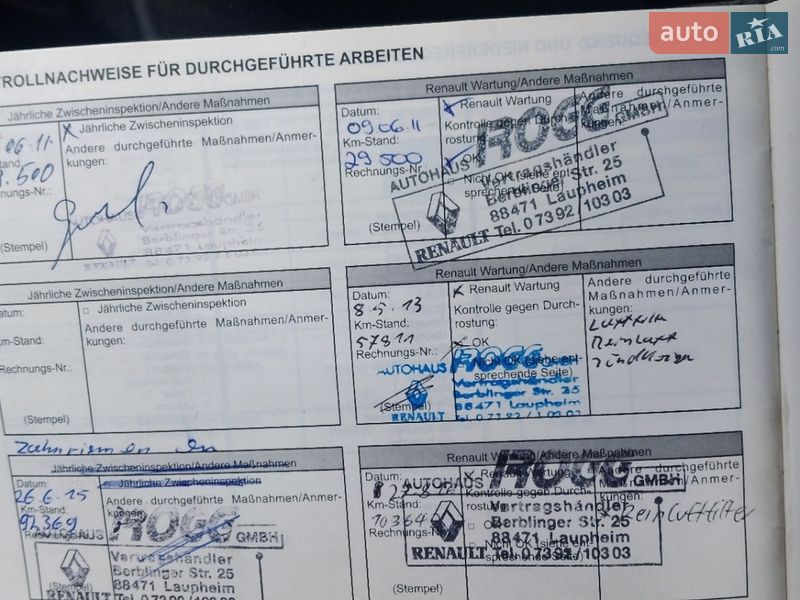 auto RIA .com
TROLLNACHWEISE FÜR DURCHGEFÜHRTE ARBEITEN
Jährliche Zwischeninspektion/Andere Maßnahmen
06.11
.500
Jährliche Zwischeninspektion
Andere durchgeführte Maßnahmen/Anmer-
kungen:
(Stempel)
AUTOHAUS
Vertragshändler
Berblinger Str. 25
88471 Laupheim
Renault Wartung/Andere Maßnahmen
Datum:
09.06.11
Km-Stand:
29 500
Rechnungs-Nr.:
Renault Wartung
Kontrolle gegen Durch-
rostung:
OK
Nicht OK (siehe ent-
sprechende Seite)
Andere durchgeführte
Maßnahmen/Anmer-
kungen:
(Stempel)
AUTOHAUS ROGG GMBH
Vertragshändler
Berblinger Str. 25
88471 Laupheim
RENAULT Tel. 07392/10303
Jährliche Zwischeninspektion/Andere Maßnahmen
Datum:
Km-Stand:
Rechnungs-Nr.:
Jährliche Zwischeninspektion
Andere durchgeführte Maßnahmen/Anmer-
kungen:
(Stempel)
Renault Wartung/Andere Maßnahmen
Datum:
8.5.13
Km-Stand:
57811
Rechnungs-Nr.:
Renault Wartung
Kontrolle gegen Durch-
rostung:
OK
Nicht OK (siehe ent-
sprechende Seite)
Andere durchgeführte
Maßnahmen/Anmer-
kungen:
Luftfilter
Reinluft
Zündkerzen
(Stempel)
AUTOHAUS ROGG
Vertragshändler
Berblinger Str. 25
88471 Laupheim
RENAULT
Zahnriemen
Jährliche Zwischeninspektion/Andere Maßnahmen
Datum:
26.6.15
Km-Stand:
Rechnungs-Nr.:
Jährliche Zwischeninspektion
Andere durchgeführte Maßnahmen/Anmer-
kungen:
(Stempel)
AUTOHAUS ROGG GMBH
Vertragshändler
Berblinger Str. 25
88471 Laupheim
RENAULT
Renault Wartung/Andere Maßnahmen
Renault Wartung
Kontrolle gegen Durch-
rostung:
OK
Nicht OK (siehe ent-
sprechende Seite)
Andere durchgeführte
Maßnahmen/Anmer-
kungen:
Reinluftfilter
(Stempel)
AUTOHAUS ROGG GMBH
Vertragshändler
Berblinger Str. 25
88471 Laupheim
RENAULT Tel. 07392/10303